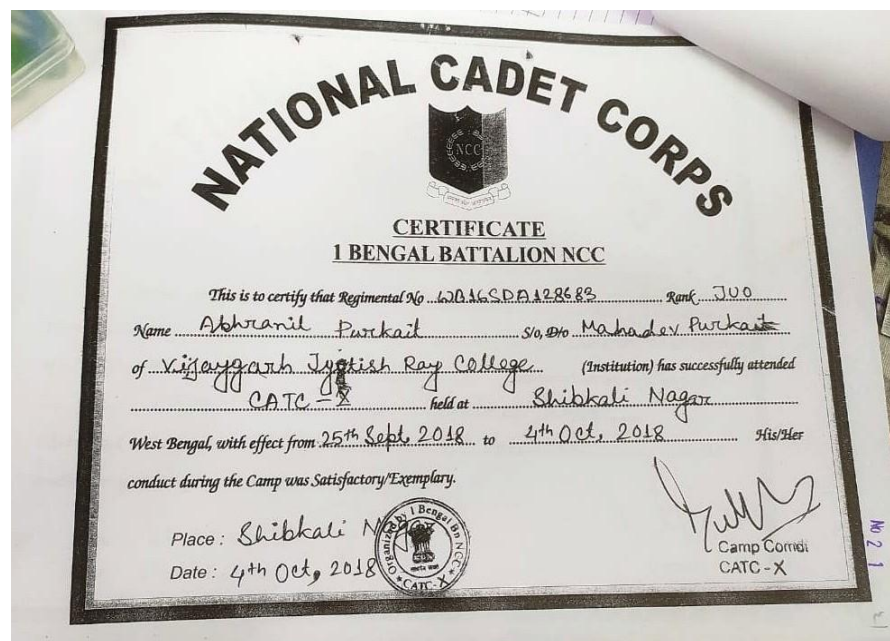 NATIONAL CADET CORPS
NCC
CERTIFICATE
1 BENGAL BATTALION NCC
This is to certify that Regimental No WB16SDA128683 Rank JUO
Name Abhranil Purkait S/o, D/o Mahadev Purkait
of Vijaygarh Jyotish Ray College (Institution) has successfully attended
CATC - X held at Shibkali Nagar
West Bengal, with effect from 25th Sept, 2018 to 4th Oct, 2018 His/Her
conduct during the Camp was Satisfactory/Exemplary.
Place : Shibkali Nagar
Date : 4th Oct, 2018
Organized by 1 Bengal Bn NCC
CATC-X
Camp Comdt
CATC - X
No 2 1